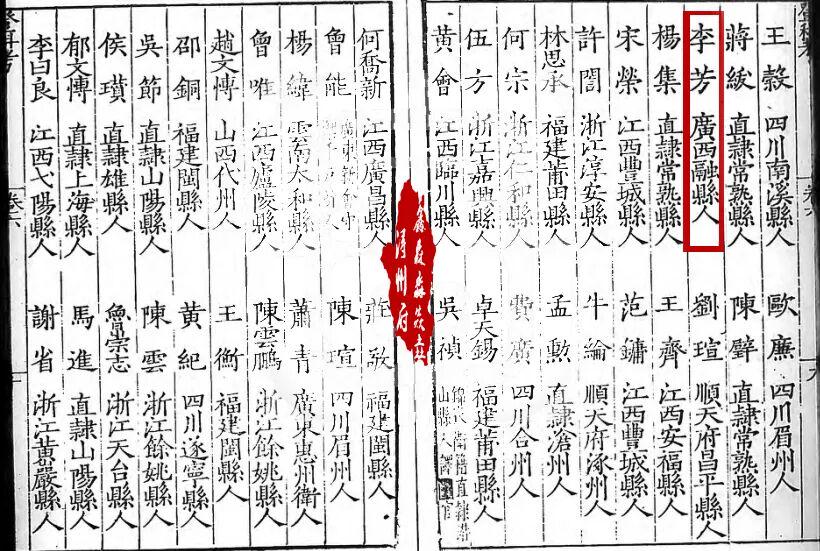 登科考
卷六
王轂 四川南溪縣人
歐廉 四川眉州人
蔣紱 直隷常熟縣人
陳璧 直隷常熟縣人
李芳 廣西融縣人
劉瑄 順天府昌平縣人
楊集 直隷常熟縣人
王齊 江西安福縣人
宋榮 江西豐城縣人
范鏞 江西豐城縣人
許誾 浙江淳安縣人
牛綸 順天府涿州人
林思承 福建莆田縣人
孟勲 直隷滄州人
何宗 浙江仁和縣人
費廣 四川合州人
伍方 浙江嘉興縣人
卓天錫 福建莆田縣人
黄會 江西臨川縣人
吳禎 山縣人 官
潯州府
何喬新 江西廣昌縣人
莊敬 福建閩縣人
曾能
陳瑄 四川眉州人
楊緯 雲南太和縣人
蕭青 廣東惠州衛人
曾唯 江西廬陵縣人
陳雲鵬 浙江餘姚縣人
趙文愽 山西代州人
王衡 福建閩縣人
邵銅 福建閩縣人
黄紀 四川遂寧縣人
吳節 直隷山陽縣人
陳雲 浙江餘姚縣人
侯瓚 直隷雄縣人
魯崇志 浙江天台縣人
郁文愽 直隷上海縣人
馬進 直隷山陽縣人
李白良 江西弋陽縣人
謝省 浙江黄巖縣人
登科考
卷六